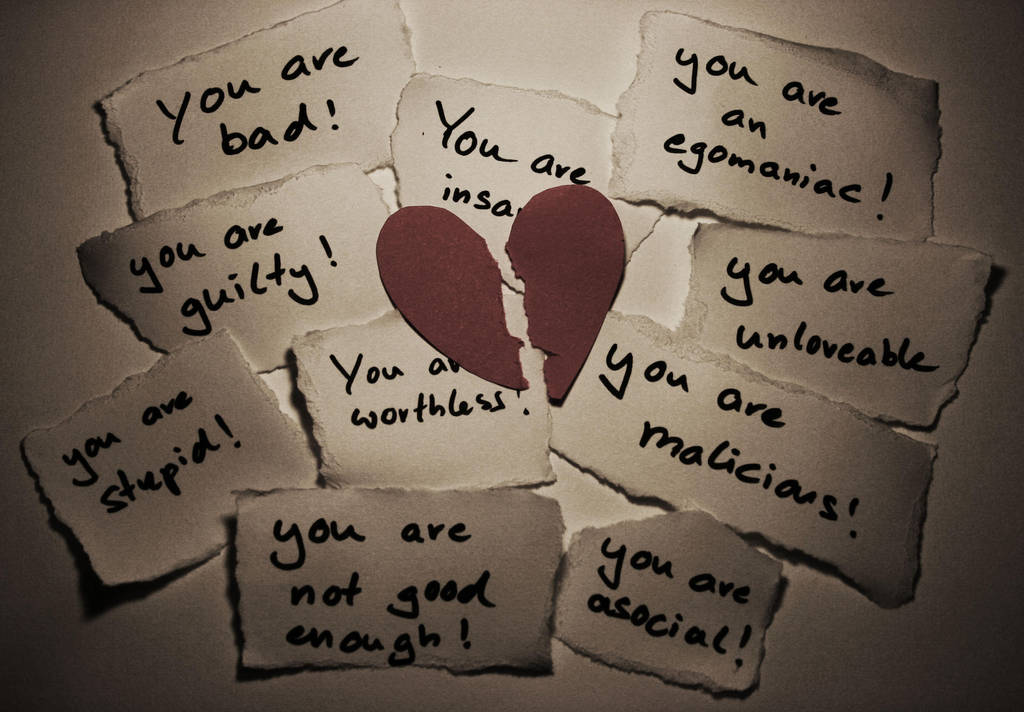 You are
bad!
You are
you are
an
egomaniac!
you are
guilty!
you are
unloveable
You
worthless!
you are
malicious!
you are
stupid!
you are
not good
enough!
you are
asocial!